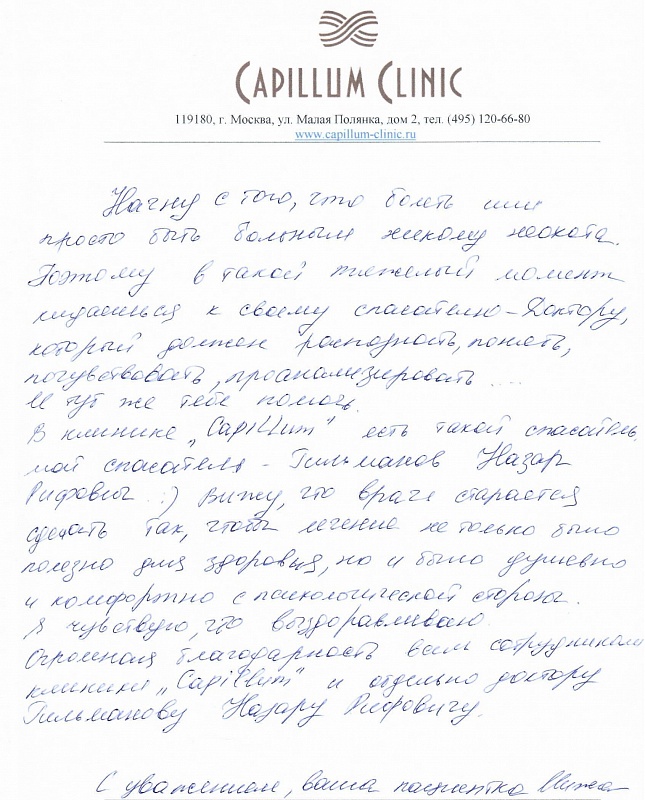 CAPILLUM CLINIC
119180, г. Москва, ул. Малая Полянка, дом 2, тел. (495) 120-66-80
www.capillum-clinic.ru
Начну с того, что болеть или
просто быть больным никому неохота.
Поэтому в такой тяжелый момент
кидаешься к своему спасателю – Доктору,
который должен распознать, понять,
почувствовать, проанализировать ....
И тут же тебе помочь.
В клинике „Capillum" есть такой спасатель,
мой спасатель – Гильманов Назар
Рифович :) Вижу, что врач старается
сделать так, чтобы лечение не только было
полезно для здоровья, но и было душевно
и комфортно с психологической стороны.
Я чувствую, что выздоравливаю.
Огромная благодарность всем сотрудникам
клиники „Capillum" и отдельно доктору
Гильманову Назару Рифовичу.
С уважением, ваша пациентка